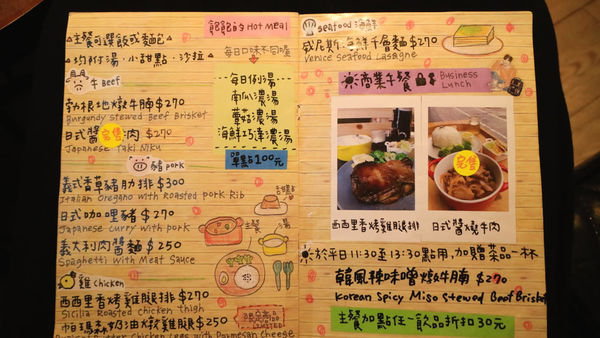 飽飽的 Hot Meal
每日口味不同喔
△主餐可選飯或麵包
△均附湯・小甜點・沙拉
牛 Beef
勃根地燉牛腩 $270
Burgundy stewed Beef Brisket
日式醬完售肉 $270
Japanese Yaki Niku
豬 pork
義式香草豬肋排 $300
Italian Oregano with Roasted pork Rib
日式咖哩豬 $270
Japanese curry with pork
義大利肉醬麵 $250
Spaghetti with Meat Sauce
雞 chicken
西西里香烤雞腿排 $270
Sicilia Roasted chicken thigh
帕瑪森奶油燉雞腿 $250
chicken Legs with Parmesan Cheese
每日例湯
南瓜濃湯
蘑菇濃湯
海鮮巧達濃湯
單點100元
主餐
湯
限定商品
LIMITED
seafood 海鮮
威尼斯海鮮千層麵 $270
Venice Seafood Lasagne
商業午餐
Business
Lunch
完售
西西里香烤雞腿排
日式醬燒牛肉
於平日11:30至13:30點用,加贈茶品一杯
韓風辣味噌燉牛腩 $270
Korean Spicy Miso Stewed Beef Brisket
主餐加點任一飲品折扣30元